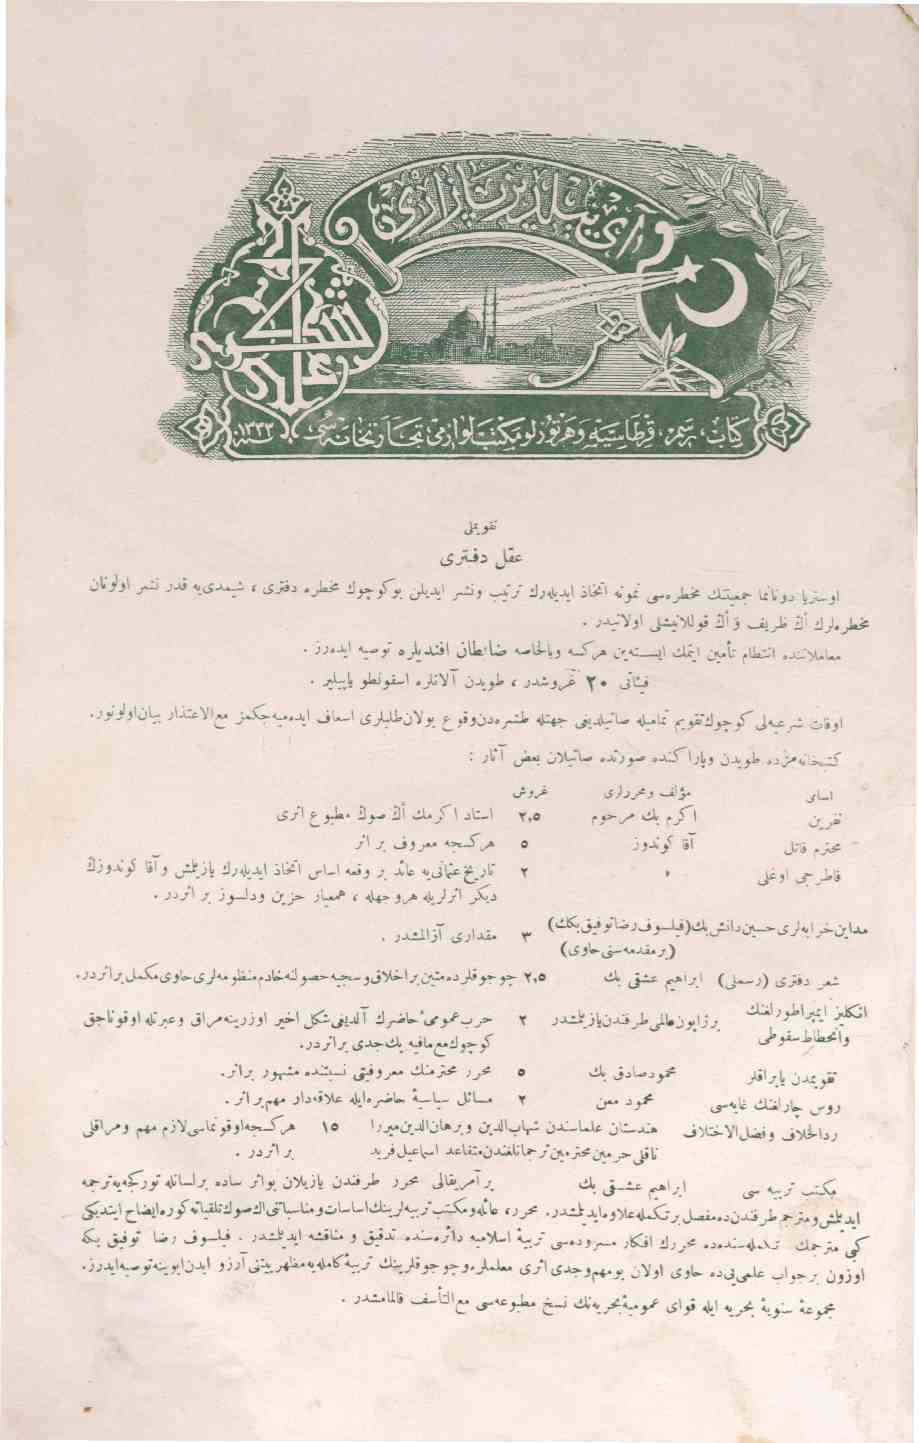 آی ییلدیز پازاری
علی شكری
كتاب، رسم، قرطاسیه و هر تورلو مكتب لوازمی تجارتخانه‌سی
سنه ۱۳۳۳
تقویملی
عقل دفتری
اوستریا دونانما جمعیتنك مخطره‌سی نمونه اتخاذ ایدیله‌رك ترتیب ونشر ایدیلن بوكوچوك مخطره دفتری ، شیمدی‌یه قدر نشر اولونان
مخطره‌لرك اڭ ظریف و اڭ قوللانیشلی اولانیدر .
معاملاتنده انتظام تأمین ایتمك ایسته‌ین هركسه وبالخاصه ضابطان افندیلره توصیه ایده‌رز .
فیئاتی ۲۰ غروشدر ، طوپدن آلانلره اسقونطو یاپیلیر .
اوقات شرعیه‌لی كوچوك تقویم تمامیله صاتیلدیغی جهتله طشره‌دن وقوع بولان طلبلری اسعاف ایده‌میه‌جكمز مع‌الاعتذار بیان اولونور.
كتبخانه‌مزده طوپدن وپاراكنده صورتده صاتیلان بعض آثار :
اسامی مؤلف ومحررلری غروش
نفرین اكرم بك مرحوم ۲,۵ استاد اكرمك اڭ صوڭ مطبوع اثری
محترم قاتل آقا كوندوز ۵ هركسجه معروف بر اثر
قاطرجی اوغلی » ۲ تاریخ عثمانی‌یه عائد بر وقعه اساس اتخاذ ایدیله‌رك یازیلمش و آقا كوندوزڭ
دیكر اثرلریله هروجهله ، همعیار حزین ودلسوز بر اثردر .
مداین خرابه‌لری حسین دانش بك (فیلسوف رضا توفیق بكك) ۳ مقداری آزالمشدر .
(بر مقدمه‌سنی حاوی)
شعر دفتری (رسملی) ابراهیم عشقی بك ۲,۵ چوجوقلرده متین بر اخلاق وسجیه حصولنه خادم منظومه‌لری حاوی مكمل بر اثردر.
انكلیز ایمپراطورلغنك برژاپون عالمی طرفندن یازیلمشدر ۲ حرب عمومیٔ حاضرك آلدیغی شكل اخیر اوزرینه مراق وعبرتله اوقوناجق
وانحطاط سقوطی كوچوك مع‌مافیه پك جدی بر اثردر.
تقویمدن یاپراقلر محمود صادق بك ۵ محرر محترمنك معروفیتی نسبتنده مشهور بر اثر.
روس چارلغنك غایه‌سی محمود معن ۲ مسائل سیاسیهٔ حاضره‌ایله علاقه‌دار مهم بر اثر .
ردالخلاف وفضل الاختلاف هندستان علماسندن شهاب‌الدین وبرهان‌الدین میررا ۱۵ هركسجه اوقونماسی لازم مهم ومراقلی
ناقلی حرمین محترمین ترجمانلغندن متقاعد اسماعیل فرید بر اثردر .
مكتب تربیه سی ابراهیم عشقی بك بر آمریقالی محرر طرفندن یازیلان بو اثر ساده بر لسانله توركجه‌یه ترجمه
ایدیلمش ومترجم طرفندن ده مفصل بر تكمله علاوه ایدیلمشدر. محرر، عائله ومكتب تربیه‌لرینك اساسات ومناسباتنی اڭ صوڭ تلقیاته كوره ایضاح ایتدیكی
كبی مترجمك تكمله‌سنده‌ده محررك افكار مسروده‌سی تربیهٔ اسلامیه دائره‌سنده تدقیق و مناقشه ایدیلمشدر . فیلسوف رضا توفیق بكه
اوزون بر جواب علمی‌یی ده حاوی اولان بومهم وجدی اثری معلملره وچوجوقلرینك تربیهٔ كامله‌یه مظهریتنی آرزو ایدن ابوینه توصیه ایدرز.
مجموعهٔ سنویهٔ بحریه ایله قوای عمومیهٔ بحریه‌نك نسخ مطبوعه‌سی مع‌التأسف قالمامشدر .